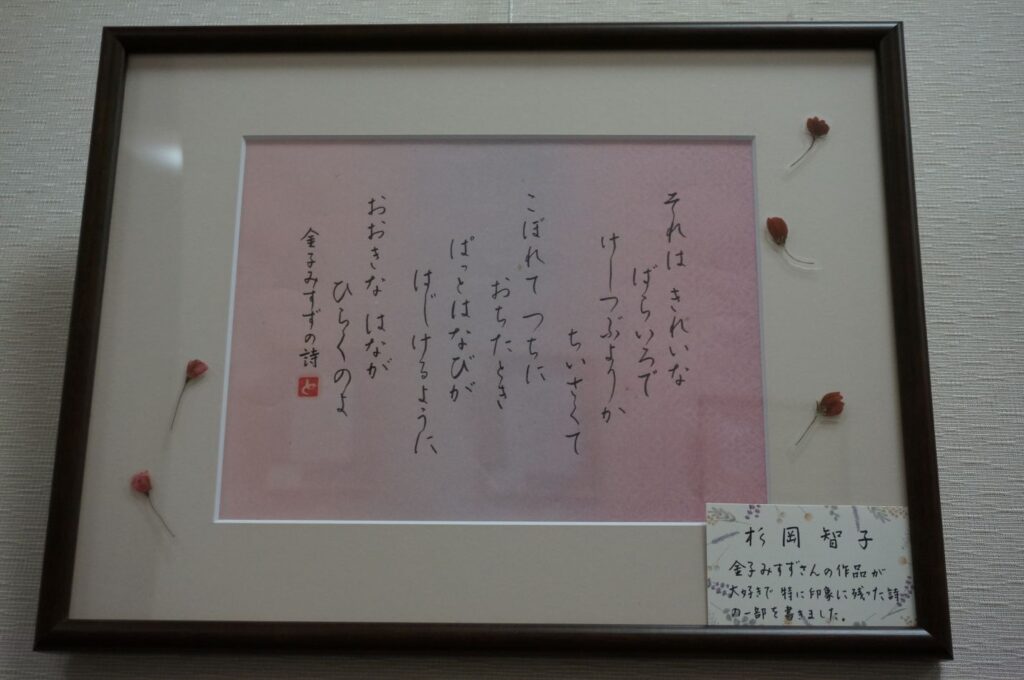 それは きれいな
ばらいろで
けしつぶよりか
ちいさくて
こぼれて つちに
おちたとき
ぱっとはなびが
はじけるように
おおきな はなが
ひらくのよ
金子みすずの詩
と
杉岡智子
金子みすずさんの作品が
大好きで 特に印象に残った詩
の一部を書きました。